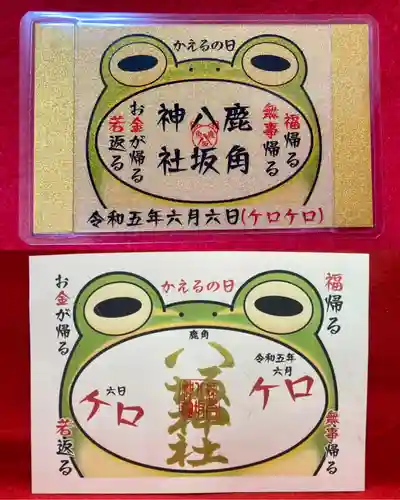 かえるの日
福帰る
無事帰る
鹿角
八坂
神社
お金が帰る
若返る
令和五年六月六日(ケロケロ)
かえるの日
福帰る
無事帰る
鹿角
八坂神社
令和五年
六月
ケロ
六日
ケロ
お金が帰る
若返る